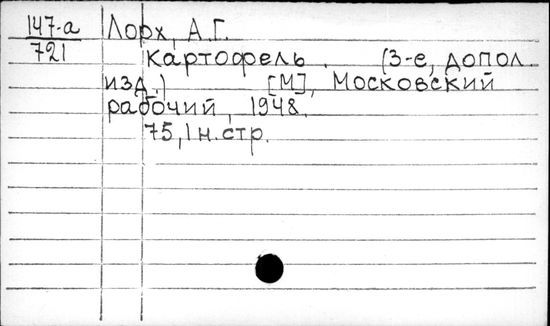 147-а Лорх, А.Г.
721 Картофель. (3-е, допол
изд.) [М], Московский
рабочий, 1948.
75, 1 н.стр.